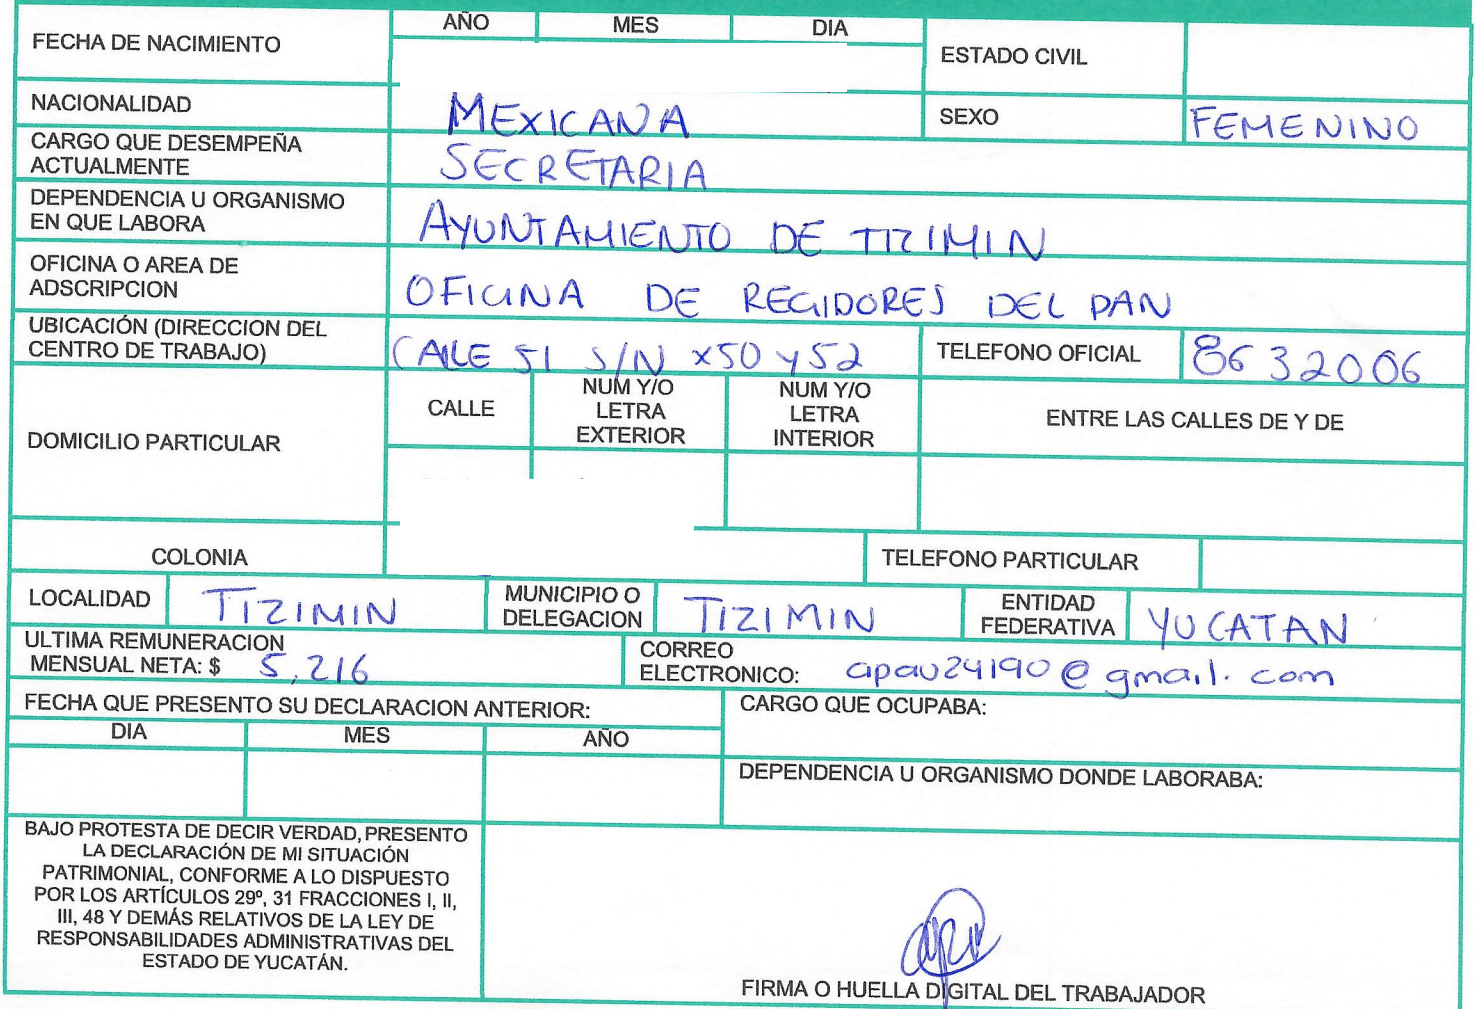 FECHA DE NACIMIENTO
AÑO MES DIA
ESTADO CIVIL
NACIONALIDAD MEXICANA SEXO FEMENINO
CARGO QUE DESEMPEÑA
ACTUALMENTE SECRETARIA
DEPENDENCIA U ORGANISMO
EN QUE LABORA AYUNTAMIENTO DE TIZIMIN
OFICINA O AREA DE
ADSCRIPCION OFICINA DE REGIDORES DEL PAN
UBICACIÓN (DIRECCION DEL
CENTRO DE TRABAJO) CALLE 51 S/N x50 y 52 TELEFONO OFICIAL 8632006
DOMICILIO PARTICULAR
CALLE
NUM Y/O
LETRA
EXTERIOR
NUM Y/O
LETRA
INTERIOR
ENTRE LAS CALLES DE Y DE
COLONIA TELEFONO PARTICULAR
LOCALIDAD TIZIMIN
MUNICIPIO O
DELEGACION TIZIMIN
ENTIDAD
FEDERATIVA YUCATAN
ULTIMA REMUNERACION
MENSUAL NETA: $ 5,216
CORREO
ELECTRONICO: apau24190@gmail.com
FECHA QUE PRESENTO SU DECLARACION ANTERIOR:
DIA MES AÑO
CARGO QUE OCUPABA:
DEPENDENCIA U ORGANISMO DONDE LABORABA:
BAJO PROTESTA DE DECIR VERDAD, PRESENTO
LA DECLARACIÓN DE MI SITUACIÓN
PATRIMONIAL, CONFORME A LO DISPUESTO
POR LOS ARTÍCULOS 29º, 31 FRACCIONES I, II,
III, 48 Y DEMÁS RELATIVOS DE LA LEY DE
RESPONSABILIDADES ADMINISTRATIVAS DEL
ESTADO DE YUCATÁN.
FIRMA O HUELLA DIGITAL DEL TRABAJADOR